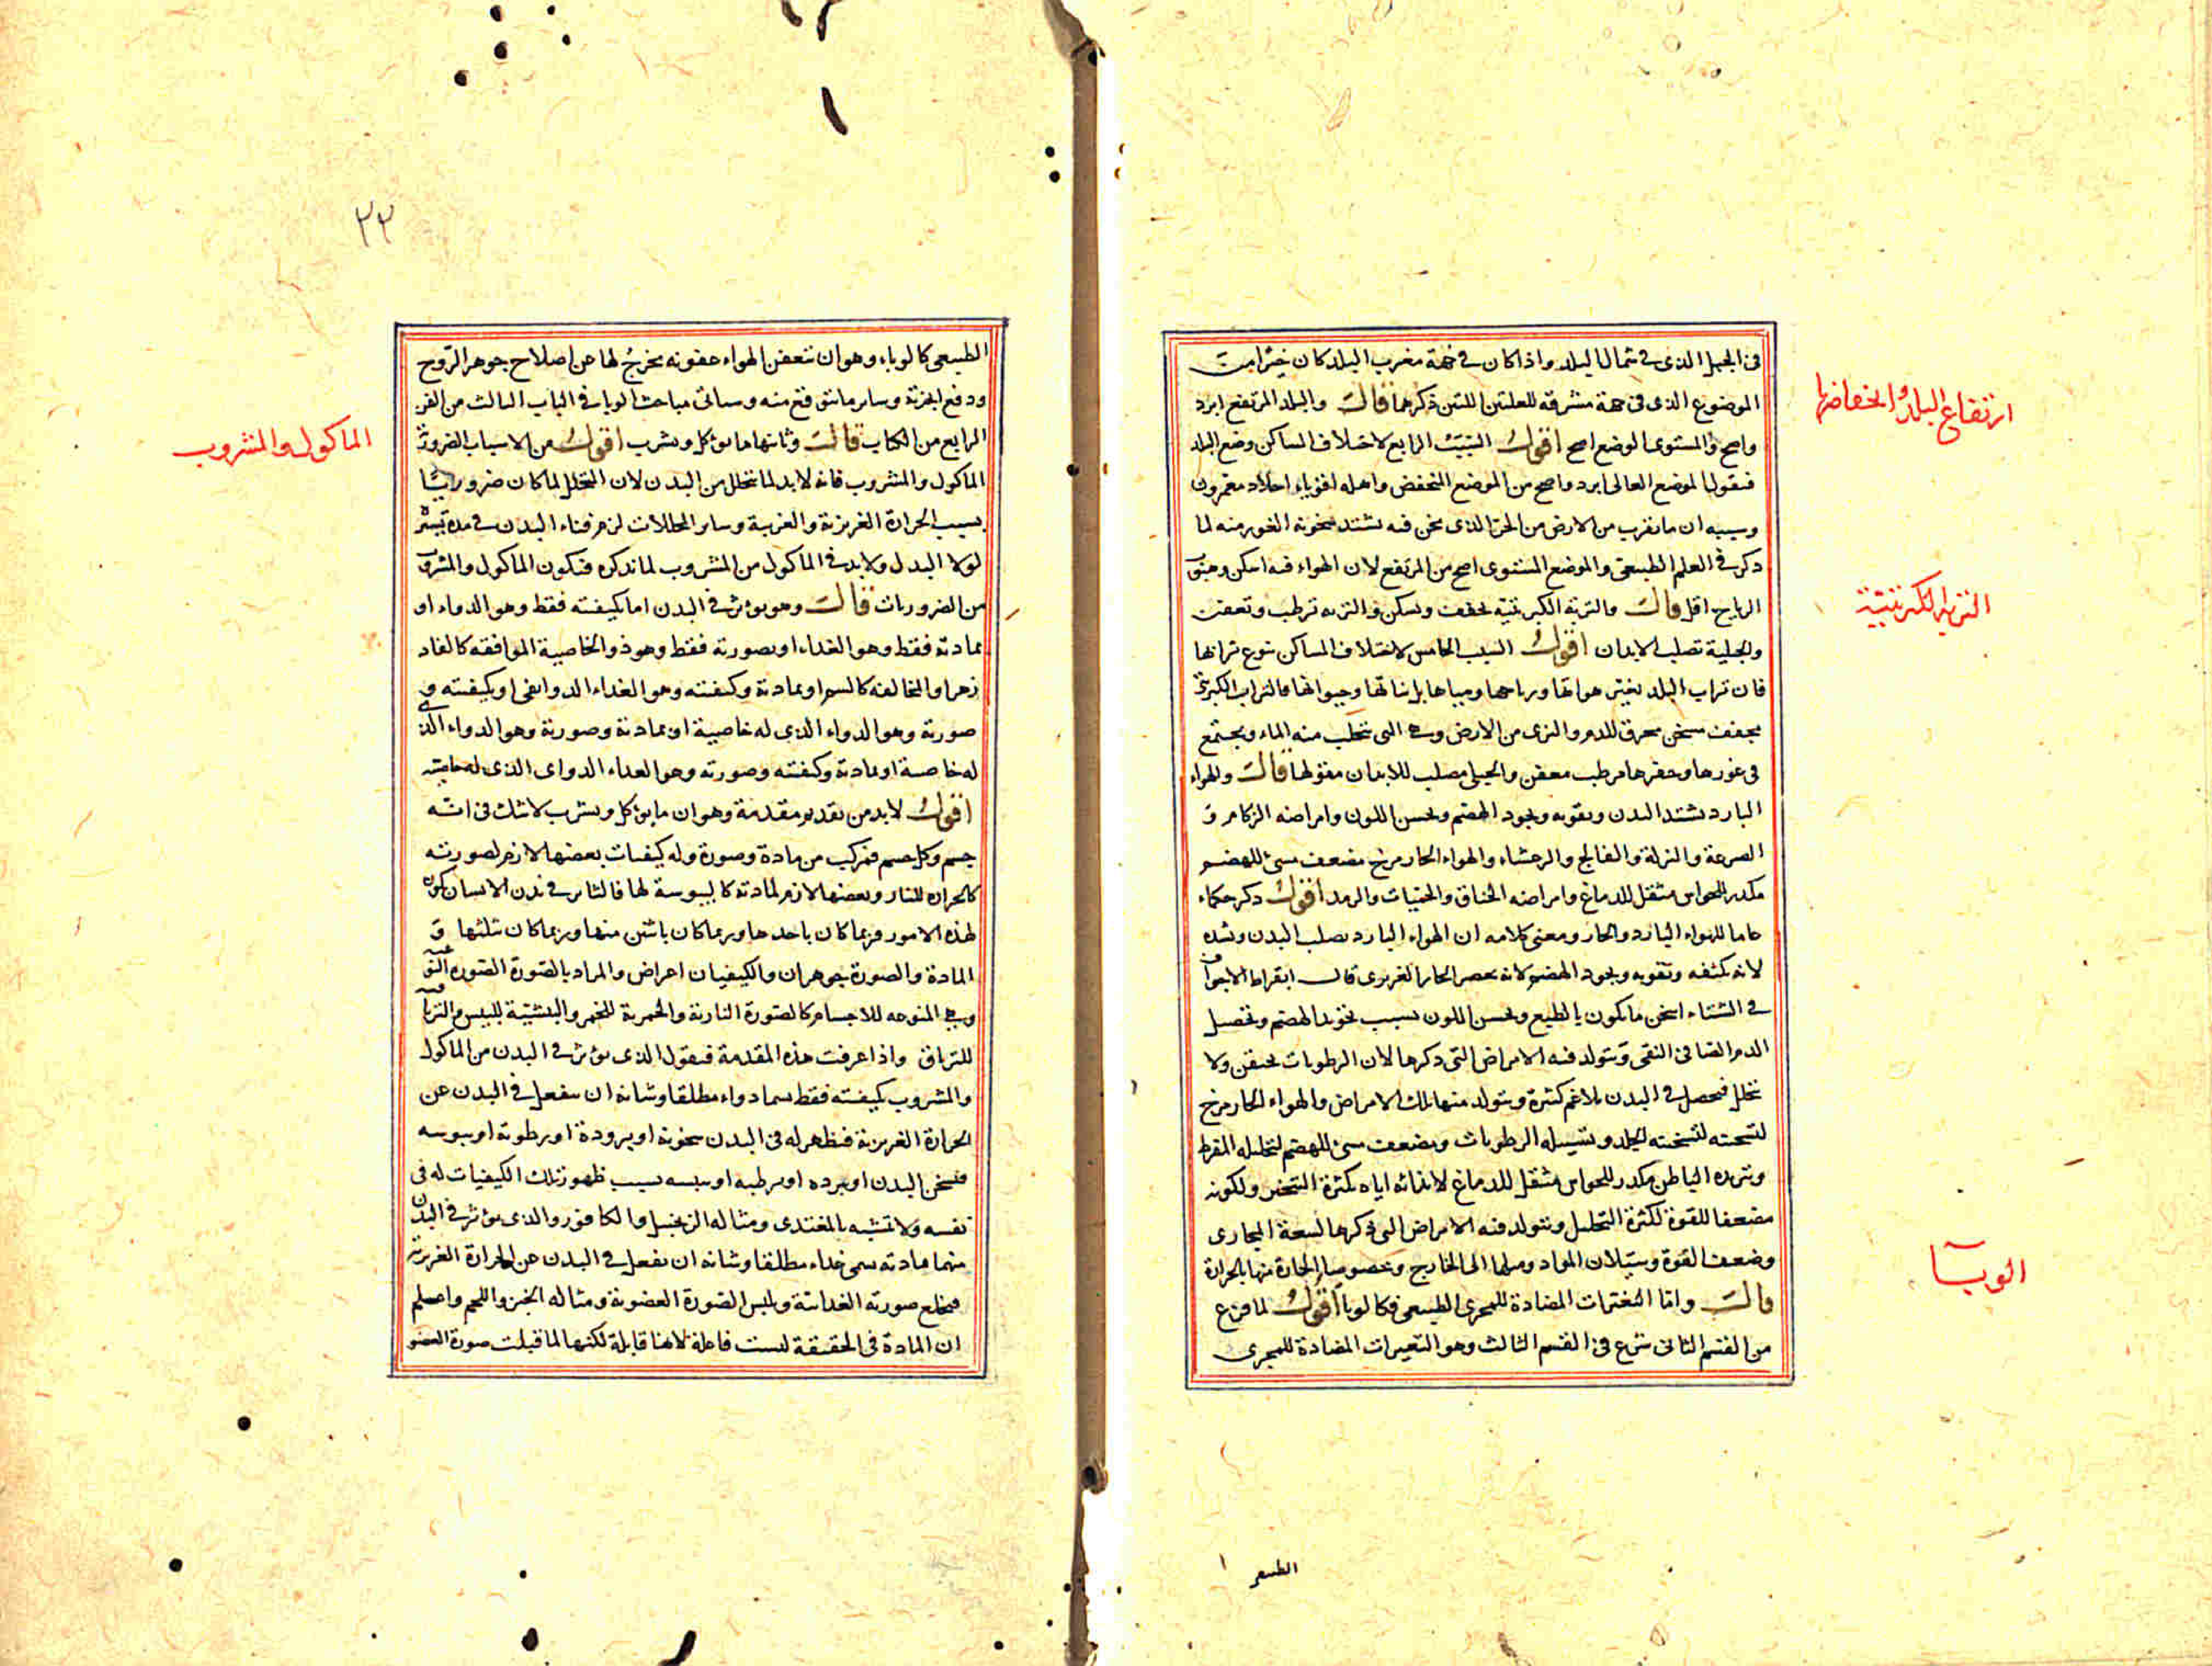 في الجبل الذي في شمال البلد واذا كان في جهة مغرب البلد كان خيرا من
الموضوع الذي في جهة مشرقه للعلتين اللتين ذكرهما قال والبلد المرتفع ابرد
واصح والمستوى الوضع اصح اقول السبب الرابع لاختلاف المساكن وضع البلد
فنقول الموضع العالى ابرد واصح من الموضع المنخفض واهله اقوياء اجلاد معمرون
وسببه ان ما يقرب من الارض من الحر الذى نحن فيه تشتد سخونة الغور منه لما
ذكر في العلم الطبيعي والموضع المستوى اصح من المرتفع لان الهواء فيه اسكن وهبوب
الرياح اقل قال والتربة الكبريتية تجفف وتسكن والنزيه ترطب وتعفن
والجبلية تصلب الابدان اقول السبب الخامس لاختلاف المساكن تنوع ترابها
فان تراب البلد يغير هوائها ورياحها ومياهها بل نباتها وحيوانها فالتراب الكبريتي
يجفف مسخن محرق للدم والنزى من الارض وهي التي يتحلب منه الماء ويجتمع
في غورها وحفرها مرطب معفن والجبلي مصلب للابدان مقولها قال والهواء
البارد يشد البدن ويقويه ويجود الهضم ويحسن اللون وامراضه الزكام و
الصرعة والنزلة والفالج والرعشاء والهواء الحار مرخ مضعف سيئ للهضم
مكدر للحواس مثقل للدماغ وامراضه الخناق والحميات والرمد اقول ذكر حكماء
عاما للهواء البارد والحار ومعنى كلامه ان الهواء البارد يصلب البدن ويشده
لانه يكثفه ويقويه ويجود الهضم لانه يحصر الحار الغريزى قال ابقراط الاجواف
في الشتاء اسخن ما يكون بالطبع ويحسن اللون بسبب تجويد الهضم وتحصيل
الدم الصافي النقي ويتولد فيه الامراض التي ذكرها لان الرطوبات تحتقن ولا
تحلل فيحصل في البدن بلاغم كثيرة ويتولد منها تلك الامراض والهواء الحار مرخ
لتسخينه الجلد وتسييله الرطوبات ومضعف سيئ للهضم لتحليله المفرط
وتبريده الباطن مكدر للحواس مثقل للدماغ لايذائه اياه بكثرة التبخير ولكونه
مضعفا للقوة لكثرة التحليل ويتولد فيه الامراض التي ذكرها لسعة المجارى
وضعف القوة وسيلان المواد وميلها الى الخارج وخصوصا الحارة منها بالحرارة
قال واما التغيرات المضادة للمجرى الطبيعي فكالوبا اقول لما فرغ
من القسم الثاني شرع في القسم الثالث وهو التغيرات المضادة للمجرى
ارتفاع البلد وانخفاضها
التربة الكبريتية
الوبآ
٣٣
الطبيعي كالوباء وهو ان تتعفن الهواء عفونة يخرج لها عن اصلاح جوهر الروح
ودفع ابخرته وساير ما يتوقع منه وسياتى مباحث الوبا في الباب الثالث من الفن
الرابع من الكتاب قال وثانيها ما يؤكل ويشرب اقول من الاسباب الضرورية
الماكول والمشروب فانه لا بد لما يتحلل من البدن لان التحلل لما كان ضروريا
بسبب الحرارة الغريزية والغريبة وساير المحللات لزم فناء البدن في مدة يسيرة
لولا البدل ولا بد في الماكول من المشروب لما نذكره فيكون الماكول والمشروب
من الضروريات قال وهو يؤثر في البدن اما بكيفيته فقط وهو الدواء او
بمادته فقط وهو الغذاء او بصورته فقط وهو ذو الخاصية الموافقة كالفاد
زهر او المخالفة كالسم او بمادته وكيفيته وهو الغذاء الدوائى او بكيفيته و
صورته وهو الدواء الذي له خاصية او بمادته وصورته وهو الدواء الذي
له خاصية او بمادته وكيفيته وصورته وهو الغذاء الدواى الذى له خاصية
اقول لا بد من تقديم مقدمة وهو ان ما يؤكل ويشرب لا شك في انه
جسم وكل جسم فمركب من مادة وصورة وله كيفيات بعضها لازم لصورته
كالحرارة للنار وبعضها لازم لمادته كاليبوسة لها فالتاثير في بدن الانسان يكون
لهذه الامور فربما كان باحدها وربما كان باثنين منها وربما كان بثلثها و
المادة والصورة جوهران والكيفيتان اعراض والمراد بالصورة الصورة النوعية
وهي المنوعه للاجسام كالصورة النارية والخمرية للخمر والبيشية للبيش والترياقية
للترياق واذا عرفت هذه المقدمة فنقول الذى يؤثر في البدن من الماكول
والمشروب بكيفيته فقط يسما دواء مطلقا وشانه ان ينفعل في البدن عن
الحرارة الغريزية فيظهر له في البدن سخونة او برودة او رطوبة او يبوسه
فيسخن البدن او يبرده او يرطبه او ييبسه بسبب ظهور تلك الكيفيات له في
نفسه ولا يتشبه بالمغتذى ومثاله الزنجبيل والكافور والذى يؤثر في البدن
منهما بمادته يسمى غذاء مطلقا وشانه ان ينفعل في البدن عن الحرارة الغريزية
فيخلع صورته الغذائية ويلبس الصورة العضوية ومثاله الخبز واللحم واعلم
ان المادة في الحقيقة ليست فاعلة لانها قابلة لكنها لما قبلت صورة العضو
الماكول والمشروب